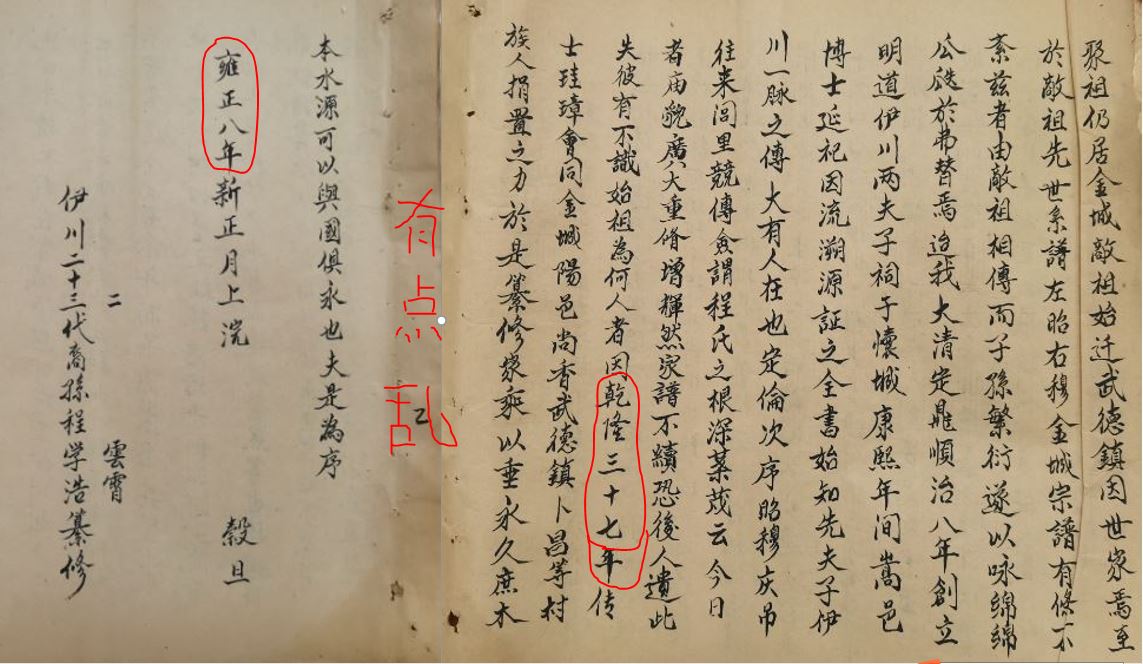 聚祖仍居金城敵祖始迁武德鎮因世家焉至
於敵祖先世系譜左昭右穆金城宗譜有條不
紊兹者由敵祖相傳而子孫繁衍遂以咏綿綿
瓜瓞於弗替焉迨我大清定鼎順治八年創立
明道伊川两夫子祠于懷城康熙年间嵩邑
博士延祀因流溯源証之全書始知先夫子伊
川一脉之傳大有人在也定倫次序昭穆庆吊
往来闾里競傳僉謂程氏之根深葉茂云今日
者庙貌廣大重脩增輝然家譜不續恐後人遺此
失彼有不識始祖為何人者因乾隆三十七年传
士珪璋會同金城陽邑尚香武德鎮卜昌等村
族人捐置之力於是纂修家乘以垂永久庶木
本水源可以與國俱永也夫是為序
有点乱
雍正八年新正月上浣 穀旦
二 雲霄
伊川二十三代裔孫程学浩纂修